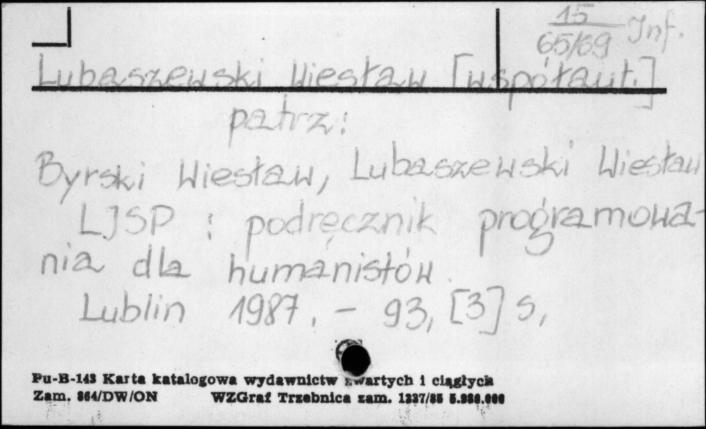 15
65/69 Inf.
Lubaszewski Wiesław [współaut.]
patrz:
Byrski Wiesław, Lubaszewski Wiesław
LJSP : podręcznik programowa-
nia dla humanistów.
Lublin 1987. - 93, [3] s,
Pu-B-143 Karta katalogowa wydawnictw zwartych i ciągłych
Zam. 864/DW/ON WZGraf Trzebnica zam. 1337/85 5.980.000